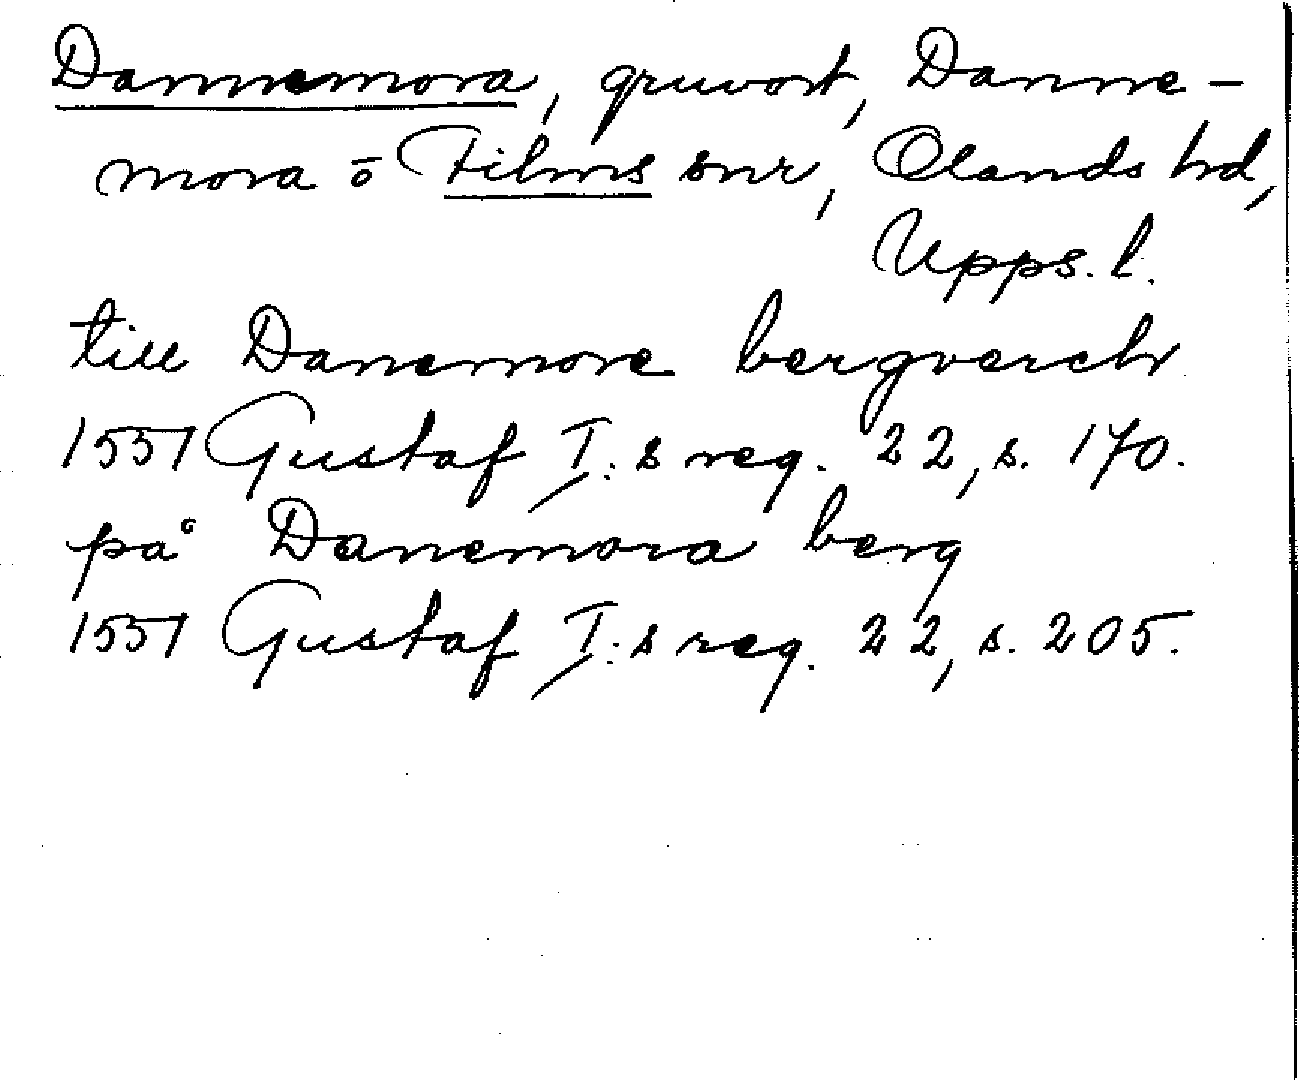 Dannemora, gruvort, Danne-
mora ō Films snr, Olands hd,
Upps. l.
till Danemore bergverch
1551 Gustaf I:s reg. 22, s. 170.
på Danemora berg
1551 Gustaf I:s reg. 22, s. 205.